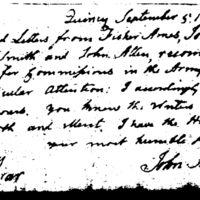 Quincy September 5. 1
d Letters from Fisher Ames, Jo
Smith and John Allen, recom
for Commissions in the Army
cular Attention: I accordingly
. You know the Writers
th and Merit. I have the H
your most humble
John